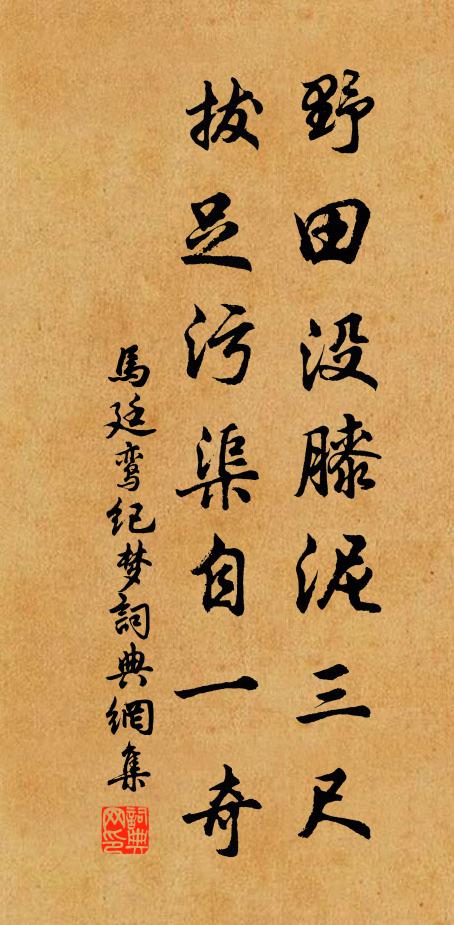 野田没膝泥三尺
拔足污渠自一奇
馬廷鸾纪梦詞典網集
詞典网印